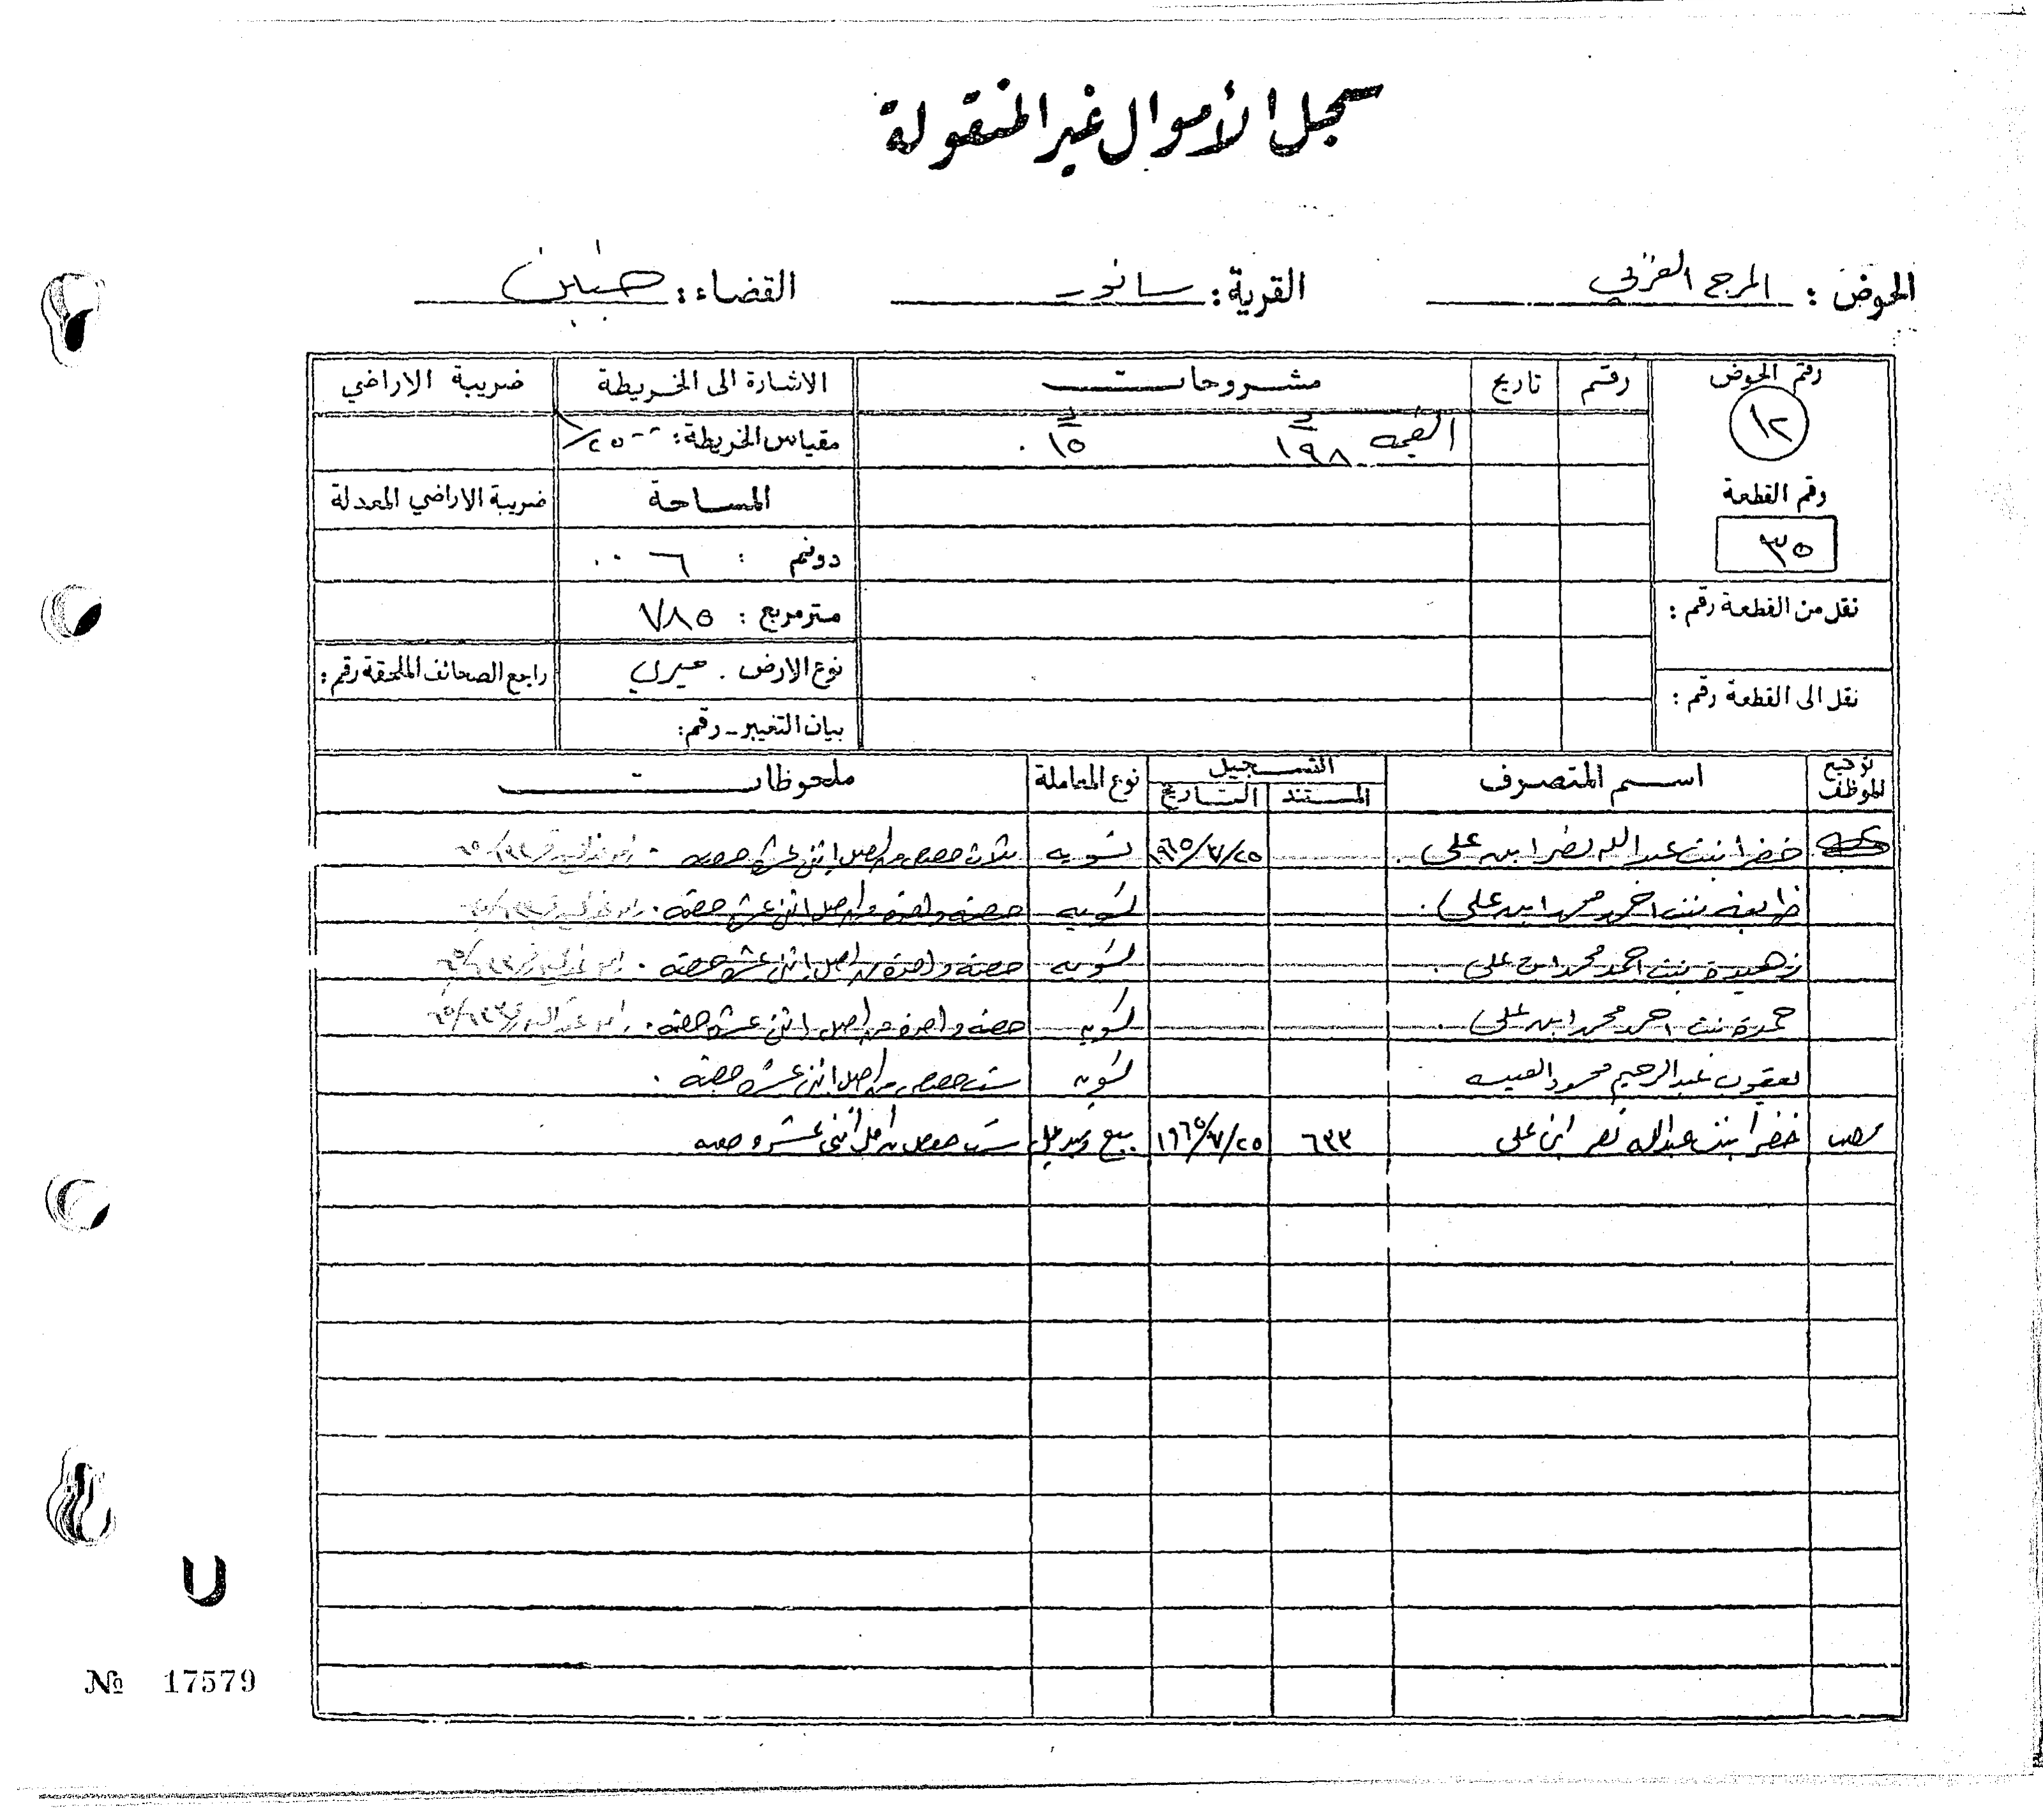 سجل الأموال غير المنقولة
الحوض : المرج الغربي القرية : سانور القضاء : جنين
رقم الحوض رقم تاريخ مشروحات الاشارة الى الخريطة ضريبة الاراضي
١٢ القيمه ١٩٨ ١٥ مقياس الخريطة : ١/٢٥٠٠
رقم القطعة المساحة ضريبة الاراضي المعدلة
٣٥ دونم : ٦
نقل من القطعة رقم : متر مربع : ٧٨٥
نوع الارض . ميري راجع الصحائف الملحقة رقم :
نقل الى القطعة رقم :
بيان التغيير - رقم :
توقيع الموظف اسم المتصرف التسجيل نوع المعاملة ملحوظات
المستند التاريخ
خضرا بنت عبد الله نصر ابن علي . ١٩٦٥/٧/٢٥ تسويه ثلاث حصص من اصل اثني عشر حصه .
بنت احمد محمد ابن علي . تسويه حصة واحدة من اصل اثني عشر حصة .
زهيدة بنت احمد محمد ابن علي . تسويه حصة واحدة من اصل اثني عشر حصة .
حمدة بنت احمد محمد ابن علي . تسويه حصة واحدة من اصل اثني عشر حصة .
يعقوب عبد الرحيم محمود تسويه ست حصص من اصل اثني عشر حصة .
خضرا بنت عبد الله نصر ابن علي ٦٣٣ ١٩٦٥/٧/٢٥ بيع ست حصص من اصل اثني عشر حصه
№ 17579